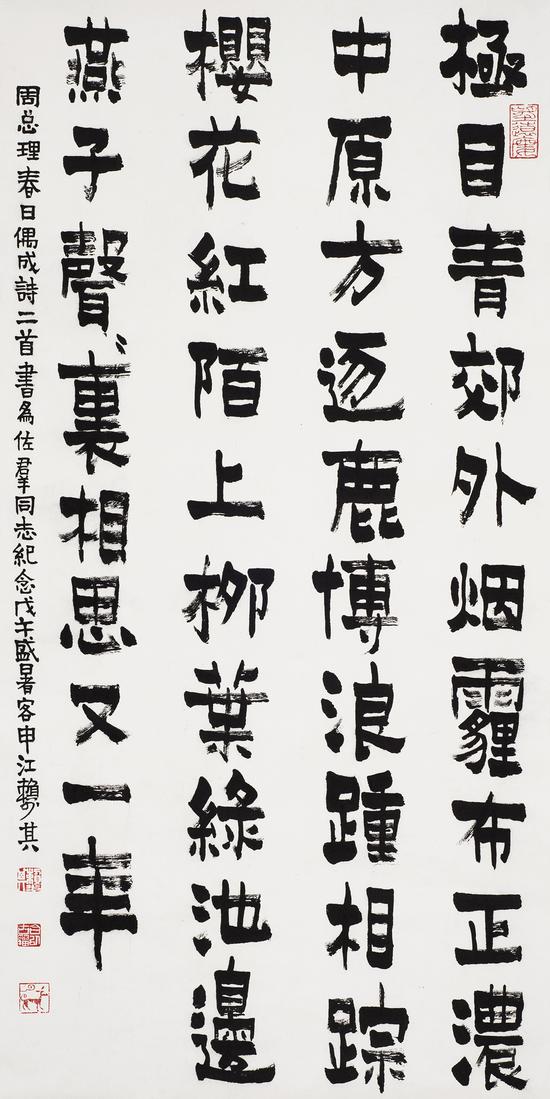 極目青郊外烟霾布正濃
中原方逐鹿博浪踵相踪
櫻花紅陌上柳葉綠池邊
燕子聲〻裏相思又一年
周总理春日偶成詩二首書為佐羣同志紀念戊午盛暑客申江賴少其